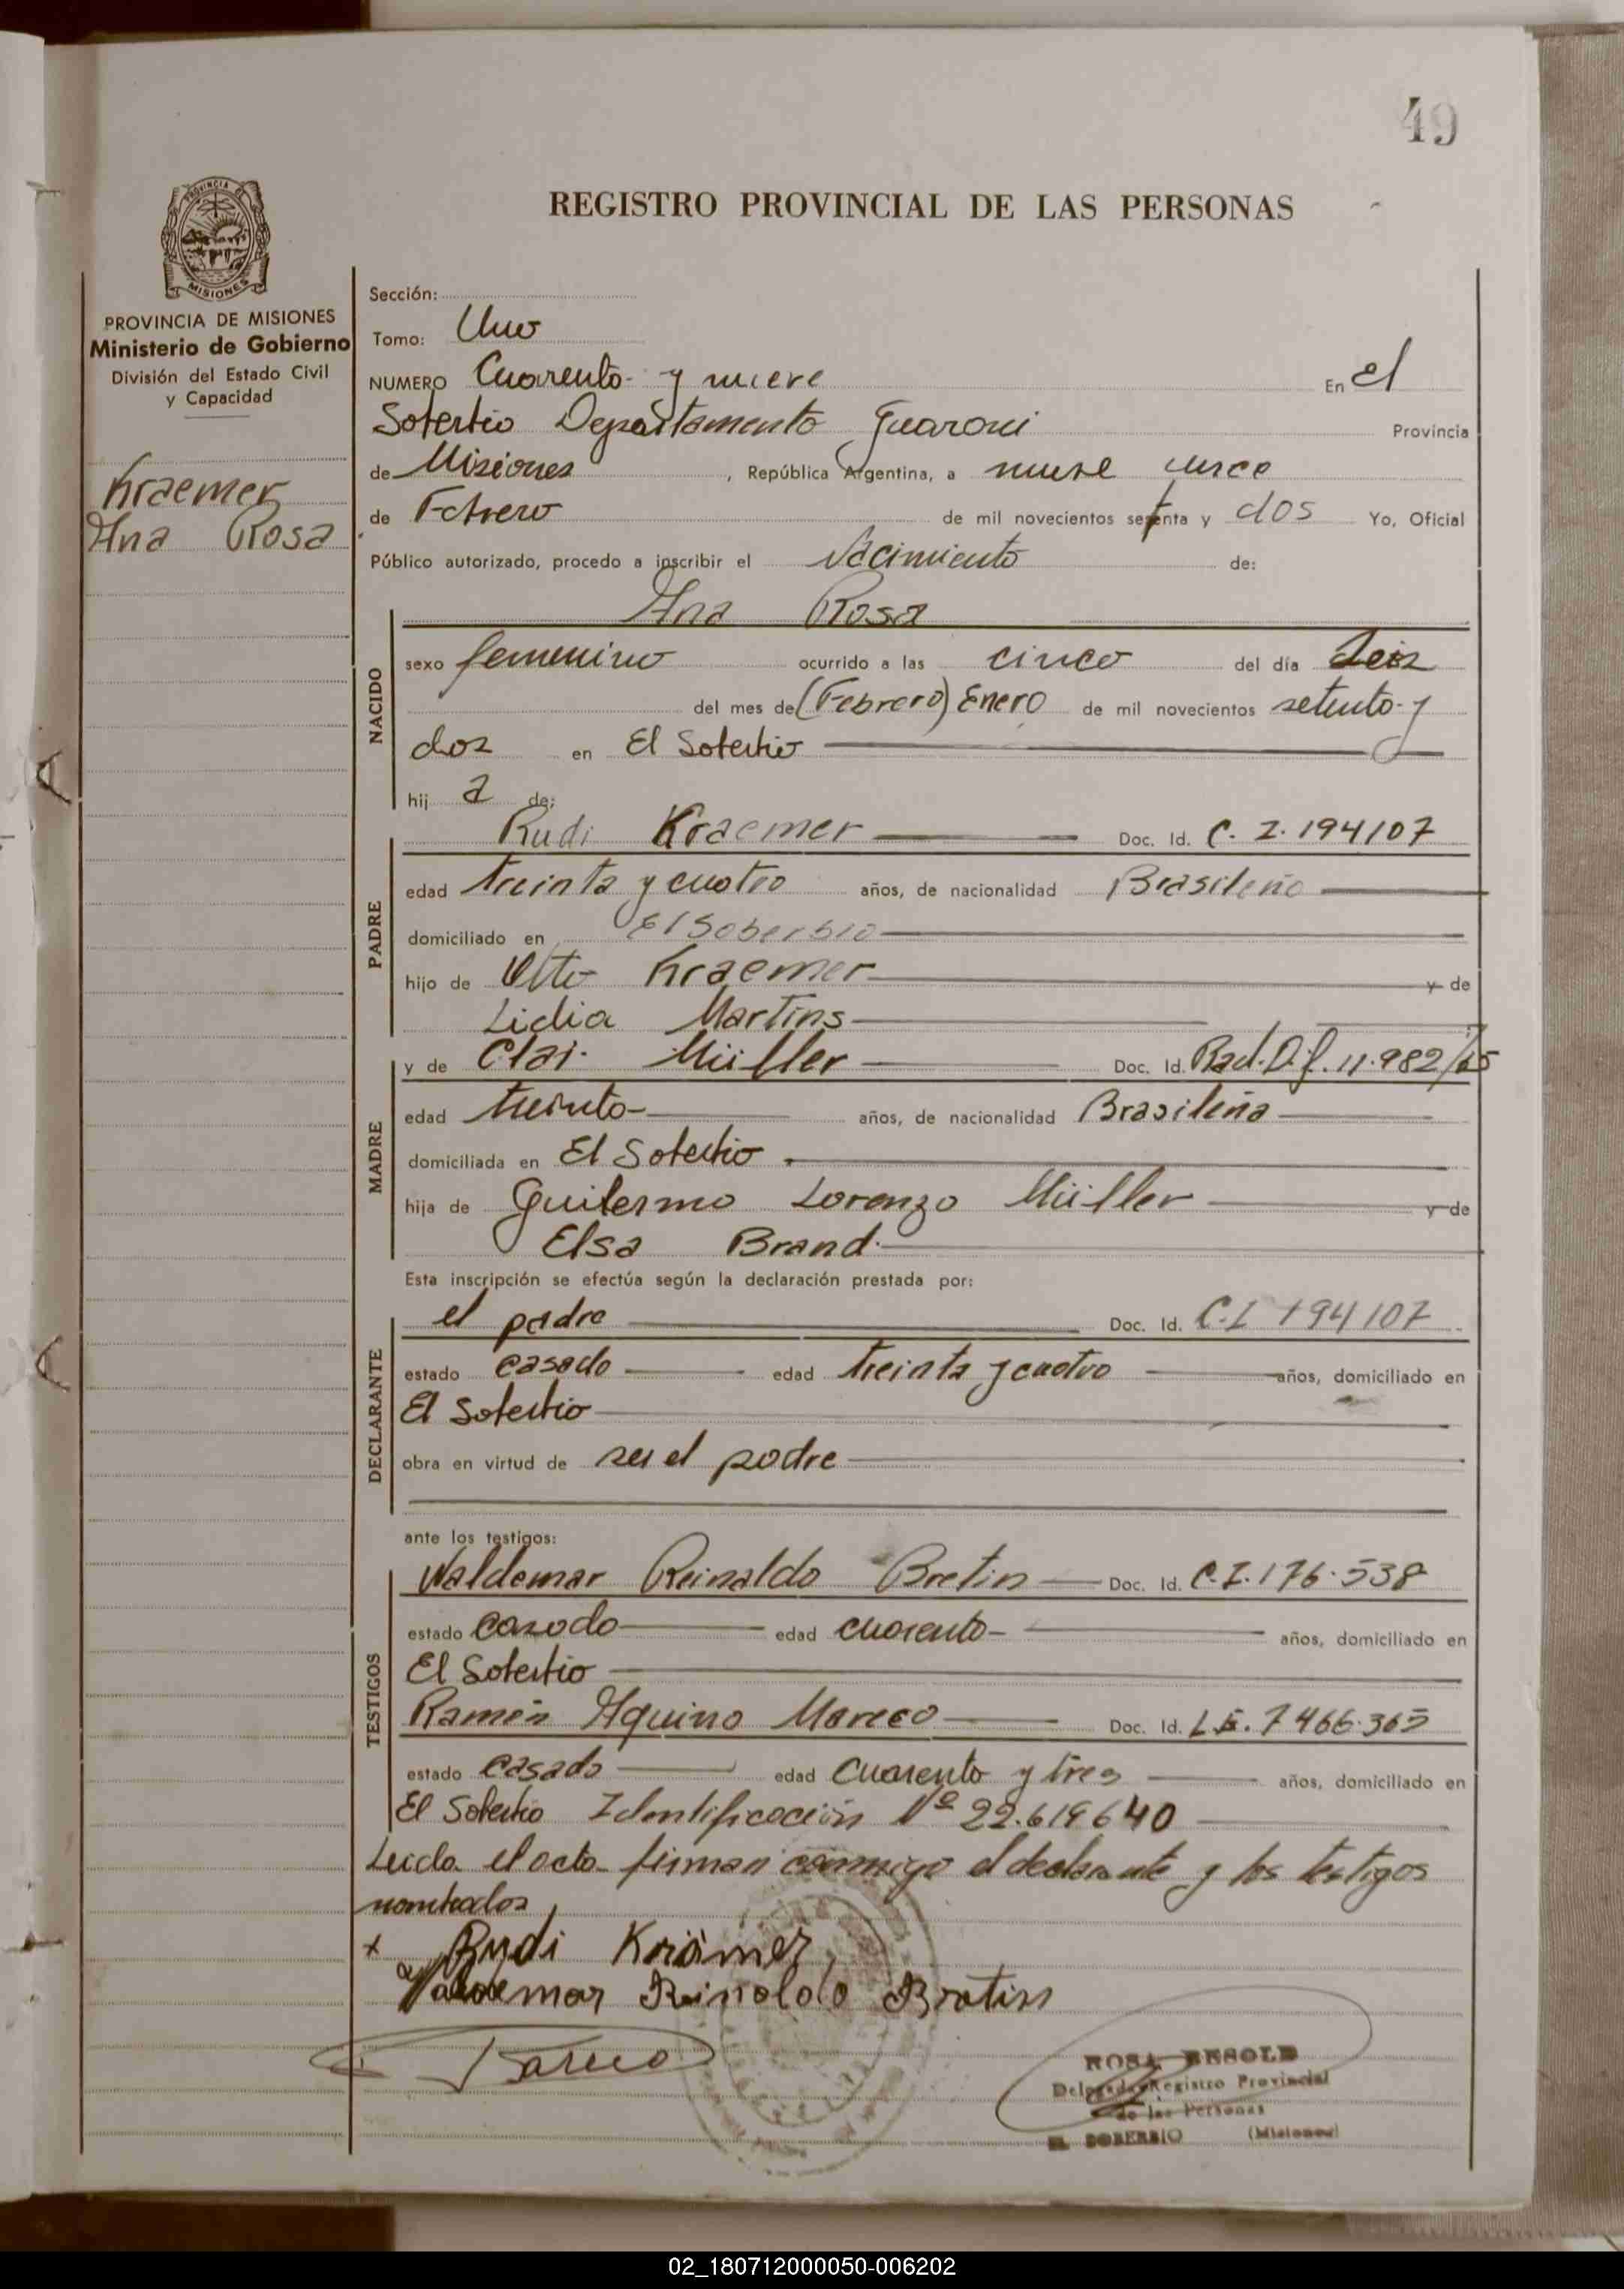 49
REGISTRO PROVINCIAL DE LAS PERSONAS
PROVINCIA DE
MISIONES
PROVINCIA DE MISIONES
Ministerio de Gobierno
División del Estado Civil
y Capacidad
Kraemer
Ana Rosa
Sección:
Tomo: Uno
NUMERO Cuarenta y nueve En el
Soberbio Departamento Guarani Provincia
de Misiones, República Argentina, a nueve
de Febrero de mil novecientos setenta y dos Yo, Oficial
Público autorizado, procedo a inscribir el Nacimiento de:
Ana Rosa
NACIDO
sexo femenino ocurrido a las cinco del día Seis
del mes de (Febrero) Enero de mil novecientos setenta y
dos en El Soberbio
hij a de:
PADRE
Rudi Kraemer Doc. Id. C. I. 194107
edad treinta y cuatro años, de nacionalidad Brasileño
domiciliado en El Soberbio
hijo de Otto Kraemer y de
Lidia Martins
MADRE
y de Clai Müller Doc. Id. Rad. Dif. 11.982/65
edad treinta años, de nacionalidad Brasileña
domiciliada en El Soberbio
hija de Guilermo Lorenzo Müller y de
Elsa Brand
Esta inscripción se efectúa según la declaración prestada por:
DECLARANTE
el padre Doc. Id. C.I 194107
estado casado edad treinta y cuatro años, domiciliado en
El Soberbio
obra en virtud de ser el padre
ante los testigos:
TESTIGOS
Waldemar Reinaldo Bretin Doc. Id. C.I. 176.538
estado casado edad cuarenta años, domiciliado en
El Soberbio
Ramón Aquino Mareco Doc. Id. L.E. 7466.365
estado casado edad cuarenta y tres años, domiciliado en
El Soberbio Identificación Nº 22.619640
Leida el acta firman conmigo el declarante y los testigos
nombrados
x Rudi Krämer
Valdemar Reinoldo Bretin
ROSA BESOLD
Delegada Registro Provincial
de las Personas
EL SOBERBIO (Misiones)
02_180712000050-006202